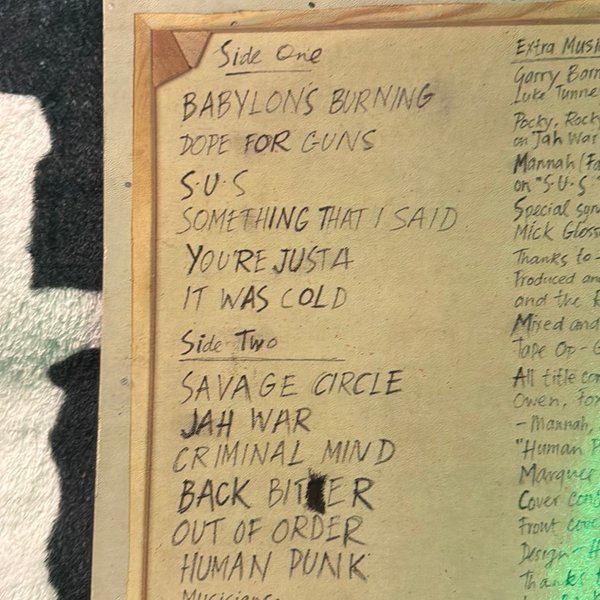 Side One
BABYLON'S BURNING
DOPE FOR GUNS
S.U.S
SOMETHING THAT I SAID
YOU'RE JUST A
IT WAS COLD
Side Two
SAVAGE CIRCLE
JAH WAR
CRIMINAL MIND
BACK BITER
OUT OF ORDER
HUMAN PUNK
Musicians
Extra Musi
Garry Barn
Luke Tunne
Pocky, Rock
on Jah War
Mannah (Fa
on "S.U.S
Special syn
Mick Gloss
Thanks to -
Produced and
and the R
Mixed and
Tape Op - G
All title con
Owen, Fox
- Mannah,
"Human P
Marquee
Cover con
Front cove
Design - H
Thanks t